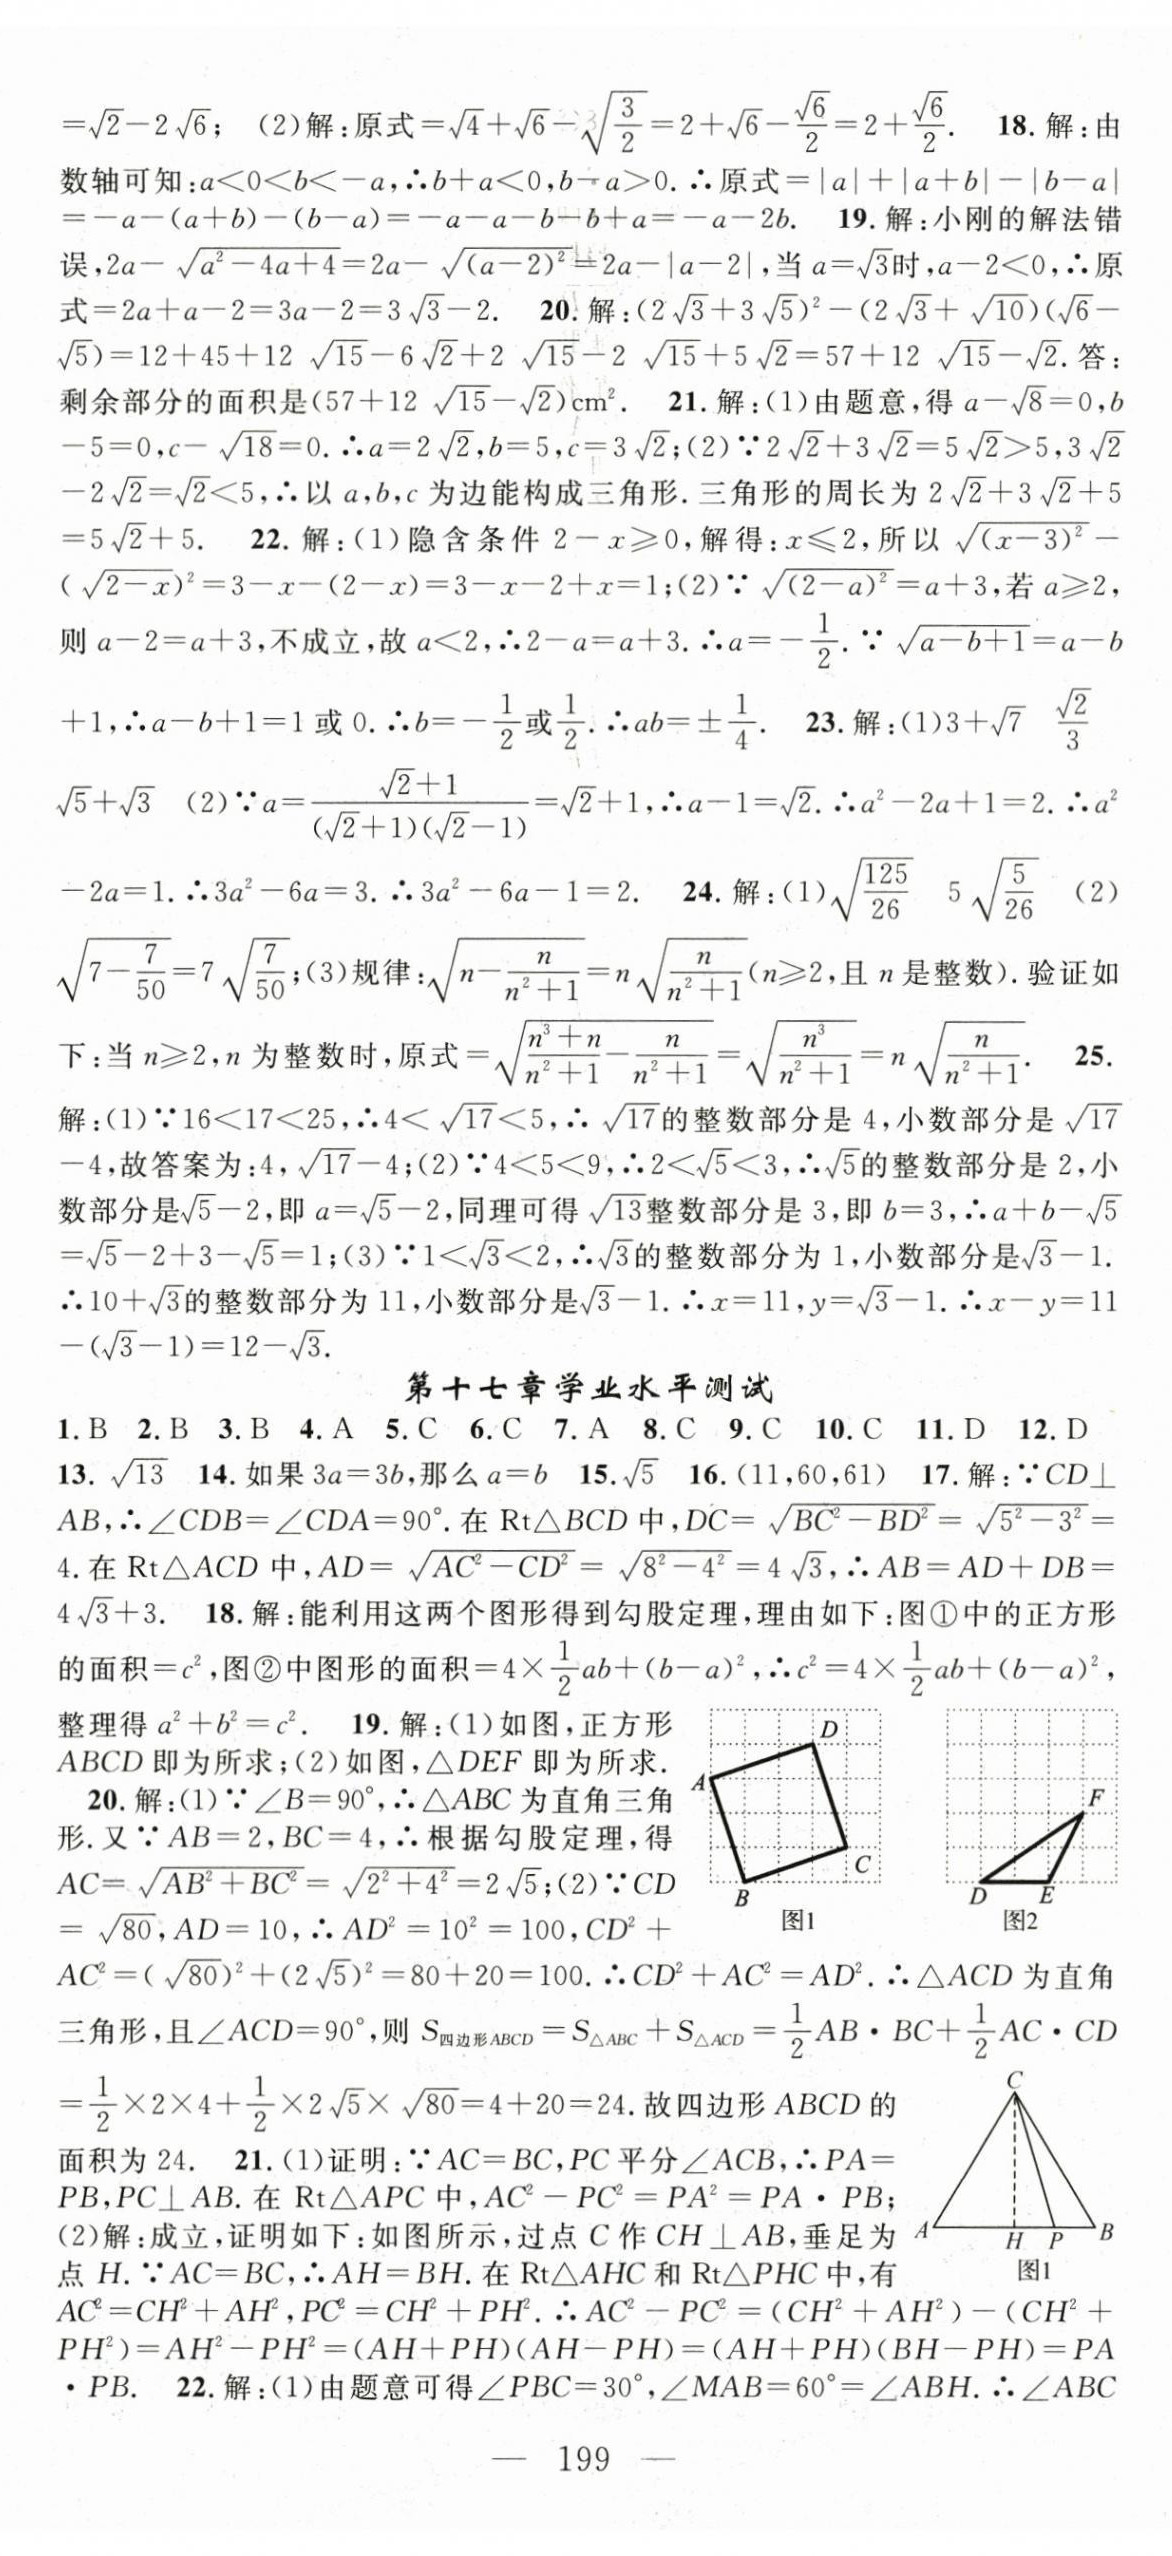 =√2-2√6; (2)解:原式=√4+√6-√(3/2)=2+√6-√6/2=2+√6/2. 18.解:由
数轴可知:a<0<b<-a,∴b+a<0,b-a>0.∴原式=|a|+|a+b|-|b-a|
=-a-(a+b)-(b-a)=-a-a-b-b+a=-a-2b. 19.解:小刚的解法错
误,2a-√(a²-4a+4)=2a-√((a-2)²)=2a-|a-2|,当a=√3时,a-2<0,∴原
式=2a+a-2=3a-2=3√3-2. 20.解:(2√3+3√5)²-(2√3+√10)(√6-
√5)=12+45+12√15-6√2+2√15-2√15+5√2=57+12√15-√2.答:
剩余部分的面积是(57+12√15-√2)cm². 21.解:(1)由题意,得a-√8=0,b
-5=0,c-√18=0.∴a=2√2,b=5,c=3√2;(2)∵2√2+3√2=5√2>5,3√2
-2√2=√2<5,∴以a,b,c为边能构成三角形.三角形的周长为2√2+3√2+5
=5√2+5. 22.解:(1)隐含条件2-x≥0,解得:x≤2,所以√((x-3)²)-
(√(2-x))²=3-x-(2-x)=3-x-2+x=1;(2)∵√((2-a)²)=a+3,若a≥2,
则a-2=a+3,不成立,故a<2,∴2-a=a+3.∴a=-1/2.∵√(a-b+1)=a-b
+1,∴a-b+1=1或0.∴b=-1/2或1/2.∴ab=±1/4. 23.解:(1)3+√7 √2/3
√5+√3 (2)∵a=(√2+1)/((√2+1)(√2-1))=√2+1,∴a-1=√2.∴a²-2a+1=2.∴a²
-2a=1.∴3a²-6a=3.∴3a²-6a-1=2. 24.解:(1)√(125/26) 5√(5/26) (2)
√(7-7/50)=7√(7/50);(3)规律:√(n-n/(n²+1))=n√(n/(n²+1))(n≥2,且n是整数).验证如
下:当n≥2,n为整数时,原式=√((n³+n)/(n²+1)-n/(n²+1))=√(n³/(n²+1))=n√(n/(n²+1)). 25.
解:(1)∵16<17<25,∴4<√17<5,∴√17的整数部分是4,小数部分是√17
-4,故答案为:4,√17-4;(2)∵4<5<9,∴2<√5<3,∴√5的整数部分是2,小
数部分是√5-2,即a=√5-2,同理可得√13整数部分是3,即b=3,∴a+b-√5
=√5-2+3-√5=1;(3)∵1<√3<2,∴√3的整数部分为1,小数部分是√3-1.
∴10+√3的整数部分为11,小数部分是√3-1.∴x=11,y=√3-1.∴x-y=11
-(√3-1)=12-√3.
第十七章学业水平测试
1.B 2.B 3.B 4.A 5.C 6.C 7.A 8.C 9.C 10.C 11.D 12.D
13.√13 14.如果3a=3b,那么a=b 15.√5 16.(11,60,61) 17.解:∵CD⊥
AB,∴∠CDB=∠CDA=90°.在Rt△BCD中,DC=√(BC²-BD²)=√(5²-3²)=
4.在Rt△ACD中,AD=√(AC²-CD²)=√(8²-4²)=4√3,∴AB=AD+DB=
4√3+3. 18.解:能利用这两个图形得到勾股定理,理由如下:图①中的正方形
的面积=c²,图②中图形的面积=4×1/2ab+(b-a)²,∴c²=4×1/2ab+(b-a)²,
整理得a²+b²=c². 19.解:(1)如图,正方形
ABCD即为所求;(2)如图,△DEF即为所求.
20.解:(1)∵∠B=90°,∴△ABC为直角三角
形.又∵AB=2,BC=4,∴根据勾股定理,得
AC=√(AB²+BC²)=√(2²+4²)=2√5;(2)∵CD
=√80,AD=10,∴AD²=10²=100,CD²+
A
D
C
B
图1
F
D
E
图2
AC²=(√80)²+(2√5)²=80+20=100.∴CD²+AC²=AD².∴△ACD为直角
三角形,且∠ACD=90°,则S四边形ABCD=S△ABC+S△ACD=1/2AB·BC+1/2AC·CD
=1/2×2×4+1/2×2√5×√80=4+20=24.故四边形ABCD的
面积为24. 21.(1)证明:∵AC=BC,PC平分∠ACB,∴PA=
PB,PC⊥AB.在Rt△APC中,AC²-PC²=PA²=PA·PB;
(2)解:成立,证明如下:如图所示,过点C作CH⊥AB,垂足为
点H.∵AC=BC,∴AH=BH.在Rt△AHC和Rt△PHC中,有
C
A
H
P
B
图1
AC²=CH²+AH²,PC²=CH²+PH².∴AC²-PC²=(CH²+AH²)-(CH²+
PH²)=AH²-PH²=(AH+PH)(AH-PH)=(AH+PH)(BH-PH)=PA
·PB. 22.解:(1)由题意可得∠PBC=30°,∠MAB=60°=∠ABH.∴∠ABC
— 199 —